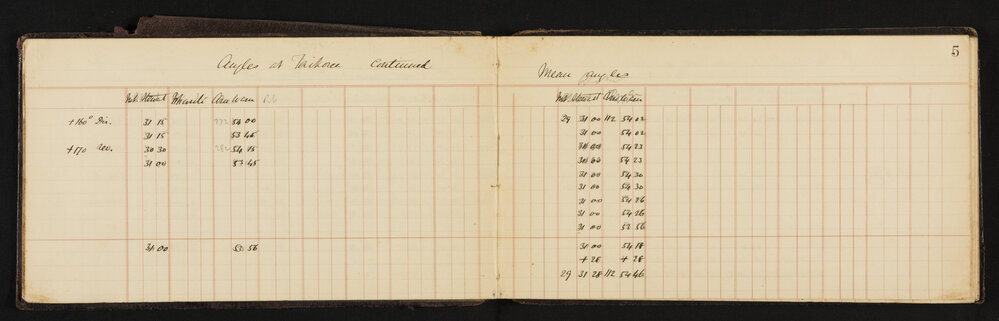 5
Angles at Taikorea Continued
Mt. Stewart Arawaru
+160° Dir. 31 15 272 54 00
31 15 53 45
+170 rev. 30 30 282 54 15
31 00 53 45
31 00 53 56
Mean Angles
Mt. Stewart
29 31 00 112 54 02
31 00 54 02
54 23
54 23
31 00 54 30
31 00 54 30
31 00 54 26
31 00 54 26
31 00 53 56
31 00 54 18
+ 28 + 28
29 31 28 112 54 46